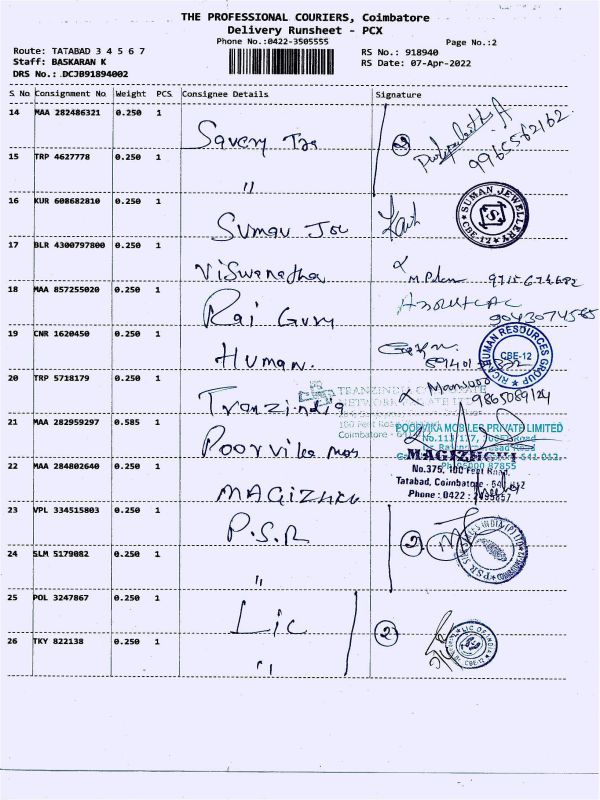 THE PROFESSIONAL COURIERS, Coimbatore
Delivery Runsheet - PCX
Phone No.:0422-3505555
Page No.:2
Route: TATABAD 3 4 5 6 7
Staff: BASKARAN K
DRS No.: DCJB91894002
RS No.: 918940
RS Date: 07-Apr-2022
S No Consignment No Weight PCS Consignee Details Signature
14 MAA 282486321 0.250 1
9965562162
15 TRP 4627778 0.250 1 "
16 KUR 608682810 0.250 1 Suman
SUMAN JEWELLERY CBE-12
17 BLR 4300797800 0.250 1 Viswanatha
18 MAA 857255020 0.250 1 Rai Guru
9043074565
19 CNR 1620450 0.250 1 Human.
HUMAN RESOURCES GROUP CBE-12
20 TRP 5718179 0.250 1 Tranzindia
Mansoor
9865089124
100 Feet
Coimbatore
21 MAA 282959297 0.585 1 Poorvika mos
POORVIKA MOBILES PRIVATE LIMITED
22 MAA 284802640 0.250 1 MAGIZHCHI
MAGIZHCHI
No.375, 100 Feet Road,
Tatabad, Coimbatore - 641 012
Phone : 0422 :
23 VPL 334515803 0.250 1 P.S.R
2
24 SLM 5179082 0.250 1 "
25 POL 3247867 0.250 1 Lic
2
LIC OF INDIA CBE-12
26 TKY 822138 0.250 1 "